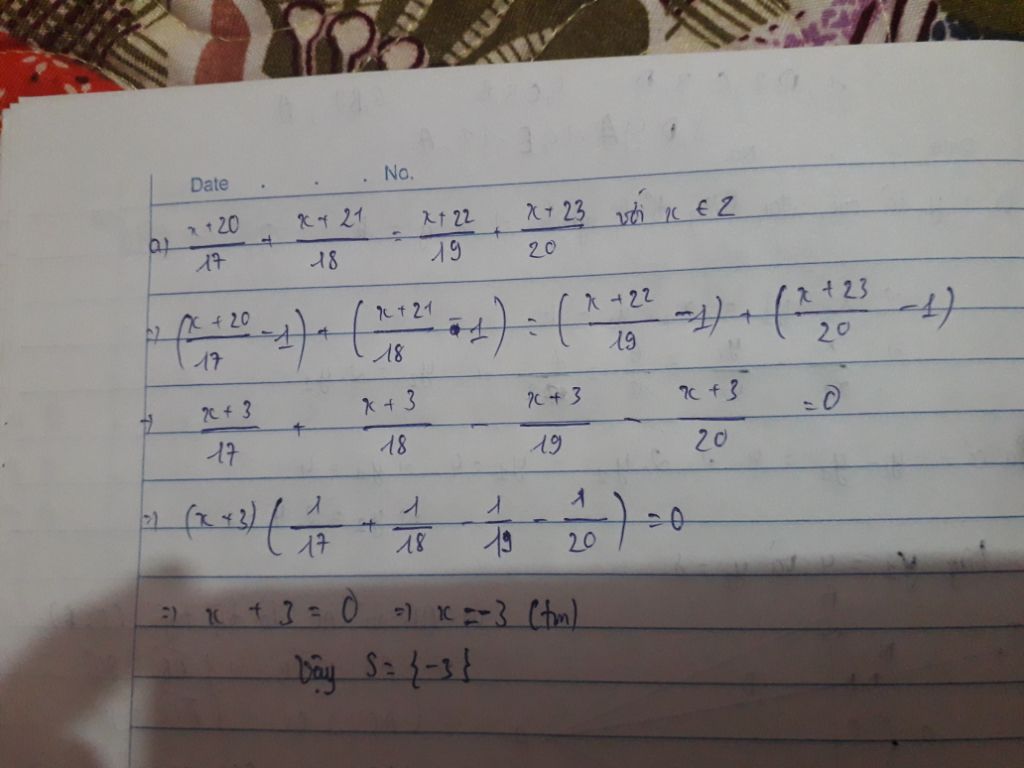 Date . . . No.
a) \frac{x+20}{17} + \frac{x+21}{18} = \frac{x+22}{19} + \frac{x+23}{20} với x ∈ Z
=> (\frac{x+20}{17} - 1) + (\frac{x+21}{18} - 1) = (\frac{x+22}{19} - 1) + (\frac{x+23}{20} - 1)
=> \frac{x+3}{17} + \frac{x+3}{18} - \frac{x+3}{19} - \frac{x+3}{20} = 0
=> (x+3) (\frac{1}{17} + \frac{1}{18} - \frac{1}{19} - \frac{1}{20}) = 0
=> x + 3 = 0 => x = -3 (tm)
Vậy S = {-3}